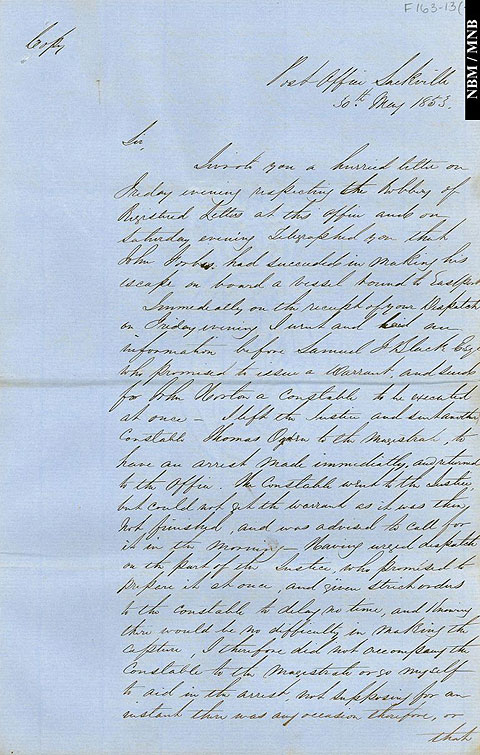 F163-13(
NBM / MNB
Copy
Post Office Sackville
30th May 1853.
Sir,
I wrote you a hurried letter on
Friday evening respecting the Robbery of
Registered Letters at this Office and on
Saturday evening Telegraphed you that
John had succeeded in making his
escape on board a vessel bound to Eastport
Immediately on the receipt of your Despatch
on Friday evening I went and laid an
information before Samuel J Black Esqr
who promised to issue a Warrant, and send
for John Norton a Constable to be executed
at once – I left the Justice and sent another
Constable Thomas Ogden to the Magistrate, to
have an arrest made immediately, and returned
to the Office. The Constable went to the Justice,
but could not get the warrant as it was then
not finished, and was advised to call for
it in the morning – Having urged dispatch
on the part of the Justice, who promised to
prepare it at once, and given strict orders
to the Constable to delay no time, and knowing
there would be no difficulty in making the
capture, I therefore did not accompany the
Constable to the Magistrate or go myself
to aid in the arrest, not supposing for an
instant there was any occasion therefore, or
that